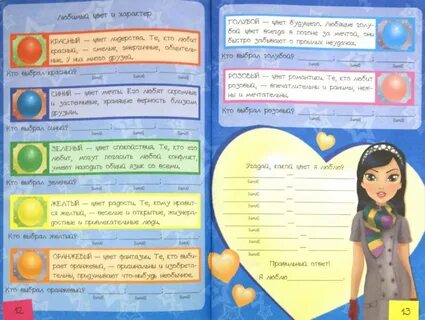 Любимый цвет и характер
КРАСНЫЙ — цвет лидерства. Те, кто любит
красный, — смелые, энергичные, общитель-
ные. У них много друзей.
Кто выбрал красный?
(имя) (имя) (имя)
СИНИЙ — цвет мечты. Кто любят скромные
и застенчивые, хранящие верность близким
друзьям.
Кто выбрал синий?
(имя) (имя) (имя)
ЗЕЛЕНЫЙ — цвет спокойствия. Те, кто его
любит, могут погасить любой конфликт,
умеют находить общий язык со всеми.
Кто выбрал зеленый?
(имя) (имя) (имя)
ЖЕЛТЫЙ — цвет радости. Те, кому нравит-
ся желтый, — веселые и открытые, жизнера-
достные и привлекательные люди.
Кто выбрал желтый?
(имя) (имя) (имя)
ОРАНЖЕВЫЙ — цвет фантазии. Те, кто выби-
рает оранжевый, — оригинальны и изобрета-
тельны, придумывают что-нибудь необычное.
Кто выбрал оранжевый?
(имя) (имя) (имя)
12
ГОЛУБОЙ — цвет будущего. Любящие голу-
бой цвет всегда в погоне за мечтой, они
быстро забывают о прошлых неудачах.
Кто выбрал голубой?
(имя) (имя) (имя)
РОЗОВЫЙ — цвет романтики. Те, кто любит
розовый, — впечатлительны и ранимы, неж-
ны и мечтательны.
Кто выбрал розовый?
(имя) (имя) (имя)
Угадай, какой цвет я люблю?
(имя)
(имя)
(имя)
(имя)
(имя)
Правильный ответ!
Я люблю
13